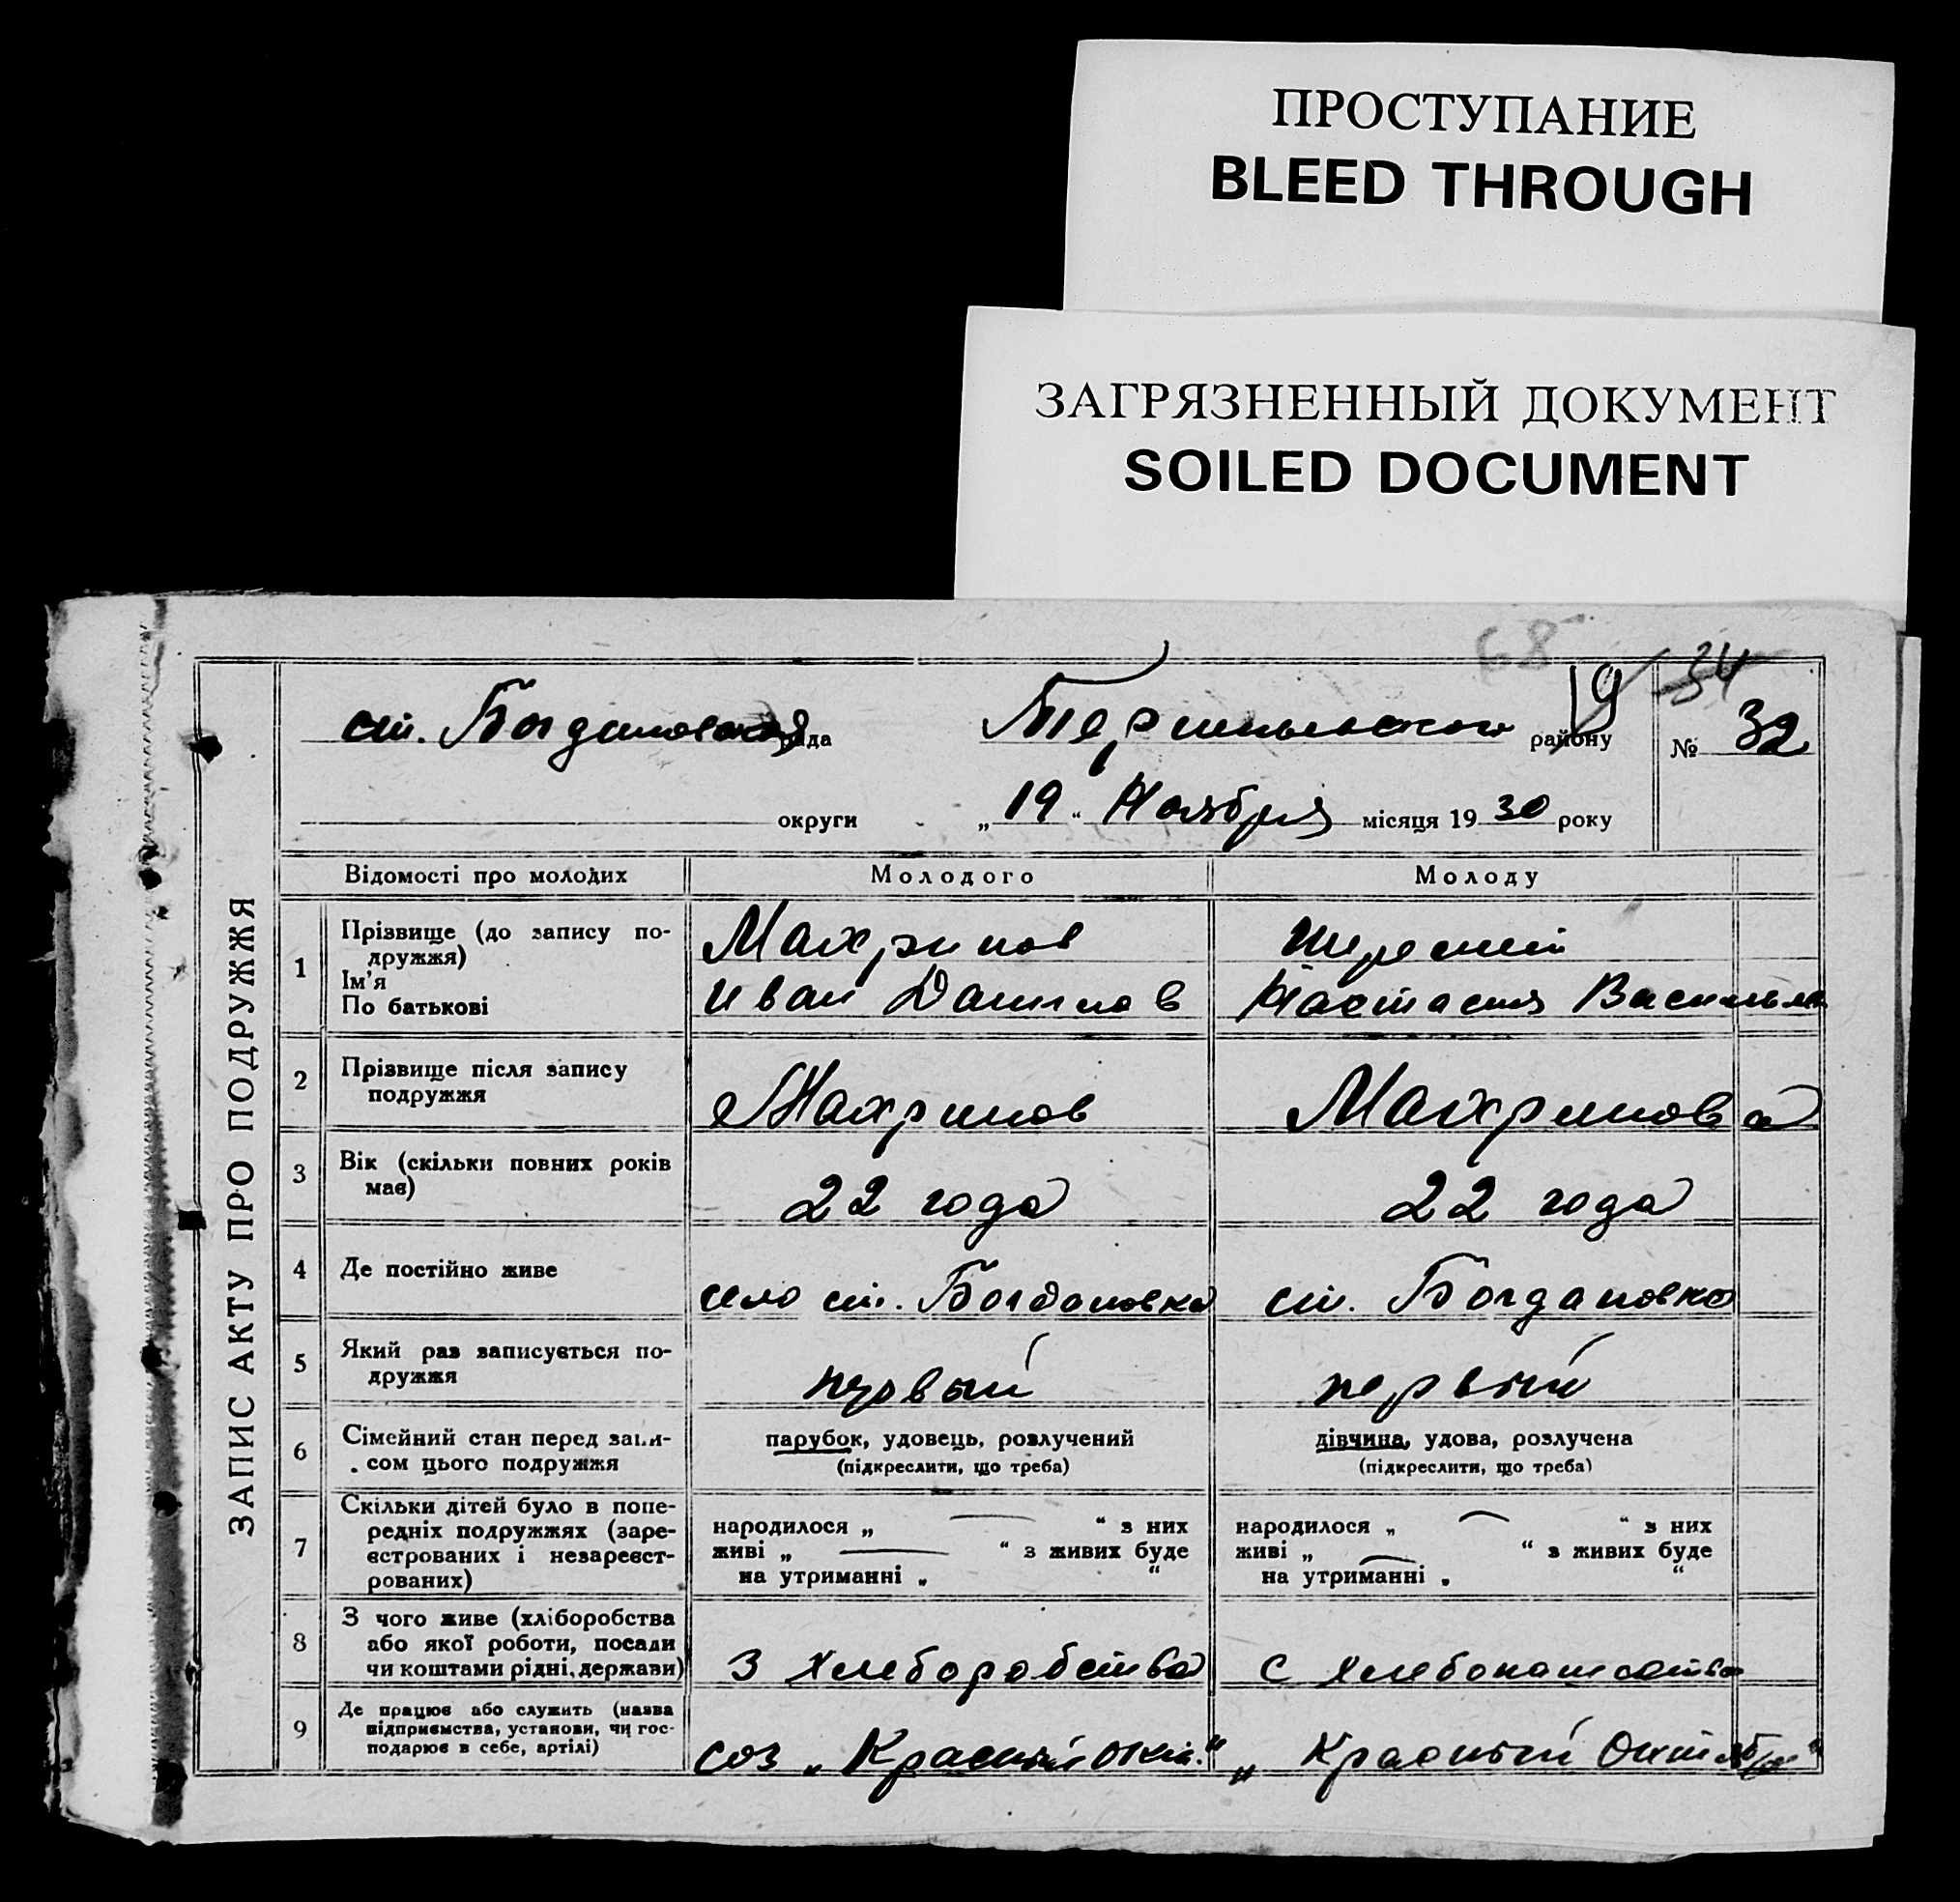 ПРОСТУПАНИЕ
BLEED THROUGH
ЗАГРЯЗНЕННЫЙ ДОКУМЕНТ
SOILED DOCUMENT
68
19 34
ст. Богдановская рада району № 32
округи „19“ Ноября місяця 1930 року
ЗАПИС АКТУ ПРО ПОДРУЖЖЯ
Відомості про молодих Молодого Молоду
1 Прізвище (до запису по-
дружжя) Махринов
Ім'я
По батькові Иван Данилов Настасия Васильев
2 Прізвище після запису
подружжя Махринов Махринова
3 Вік (скільки повних років
має) 22 года 22 года
4 Де постійно живе село ст. Богдановка ст. Богдановка
5 Який раз записується по-
дружжя первый первый
6 Сімейний стан перед запи-
сом цього подружжя
парубок, удовець, розлучений
(підкреслити, що треба)
дівчина, удова, розлучена
(підкреслити, що треба)
7 Скільки дітей було в попе-
редніх подружжях (заре-
єстрованих і незареєст-
рованих)
народилося „ — “ з них
живі „ — “ з живих буде
на утриманні „ “
народилося „ — “ з них
живі „ — “ з живих буде
на утриманні „ “
8 З чого живе (хліборобства
або якої роботи, посади
чи коштами рідні, держави) З хлеборобства С хлебопашества
9 Де працює або служить (назва
підприємства, установи, чи гос-
подарює в себе, артілі) соз „Красный Окт.“ „Красный Октябрь“